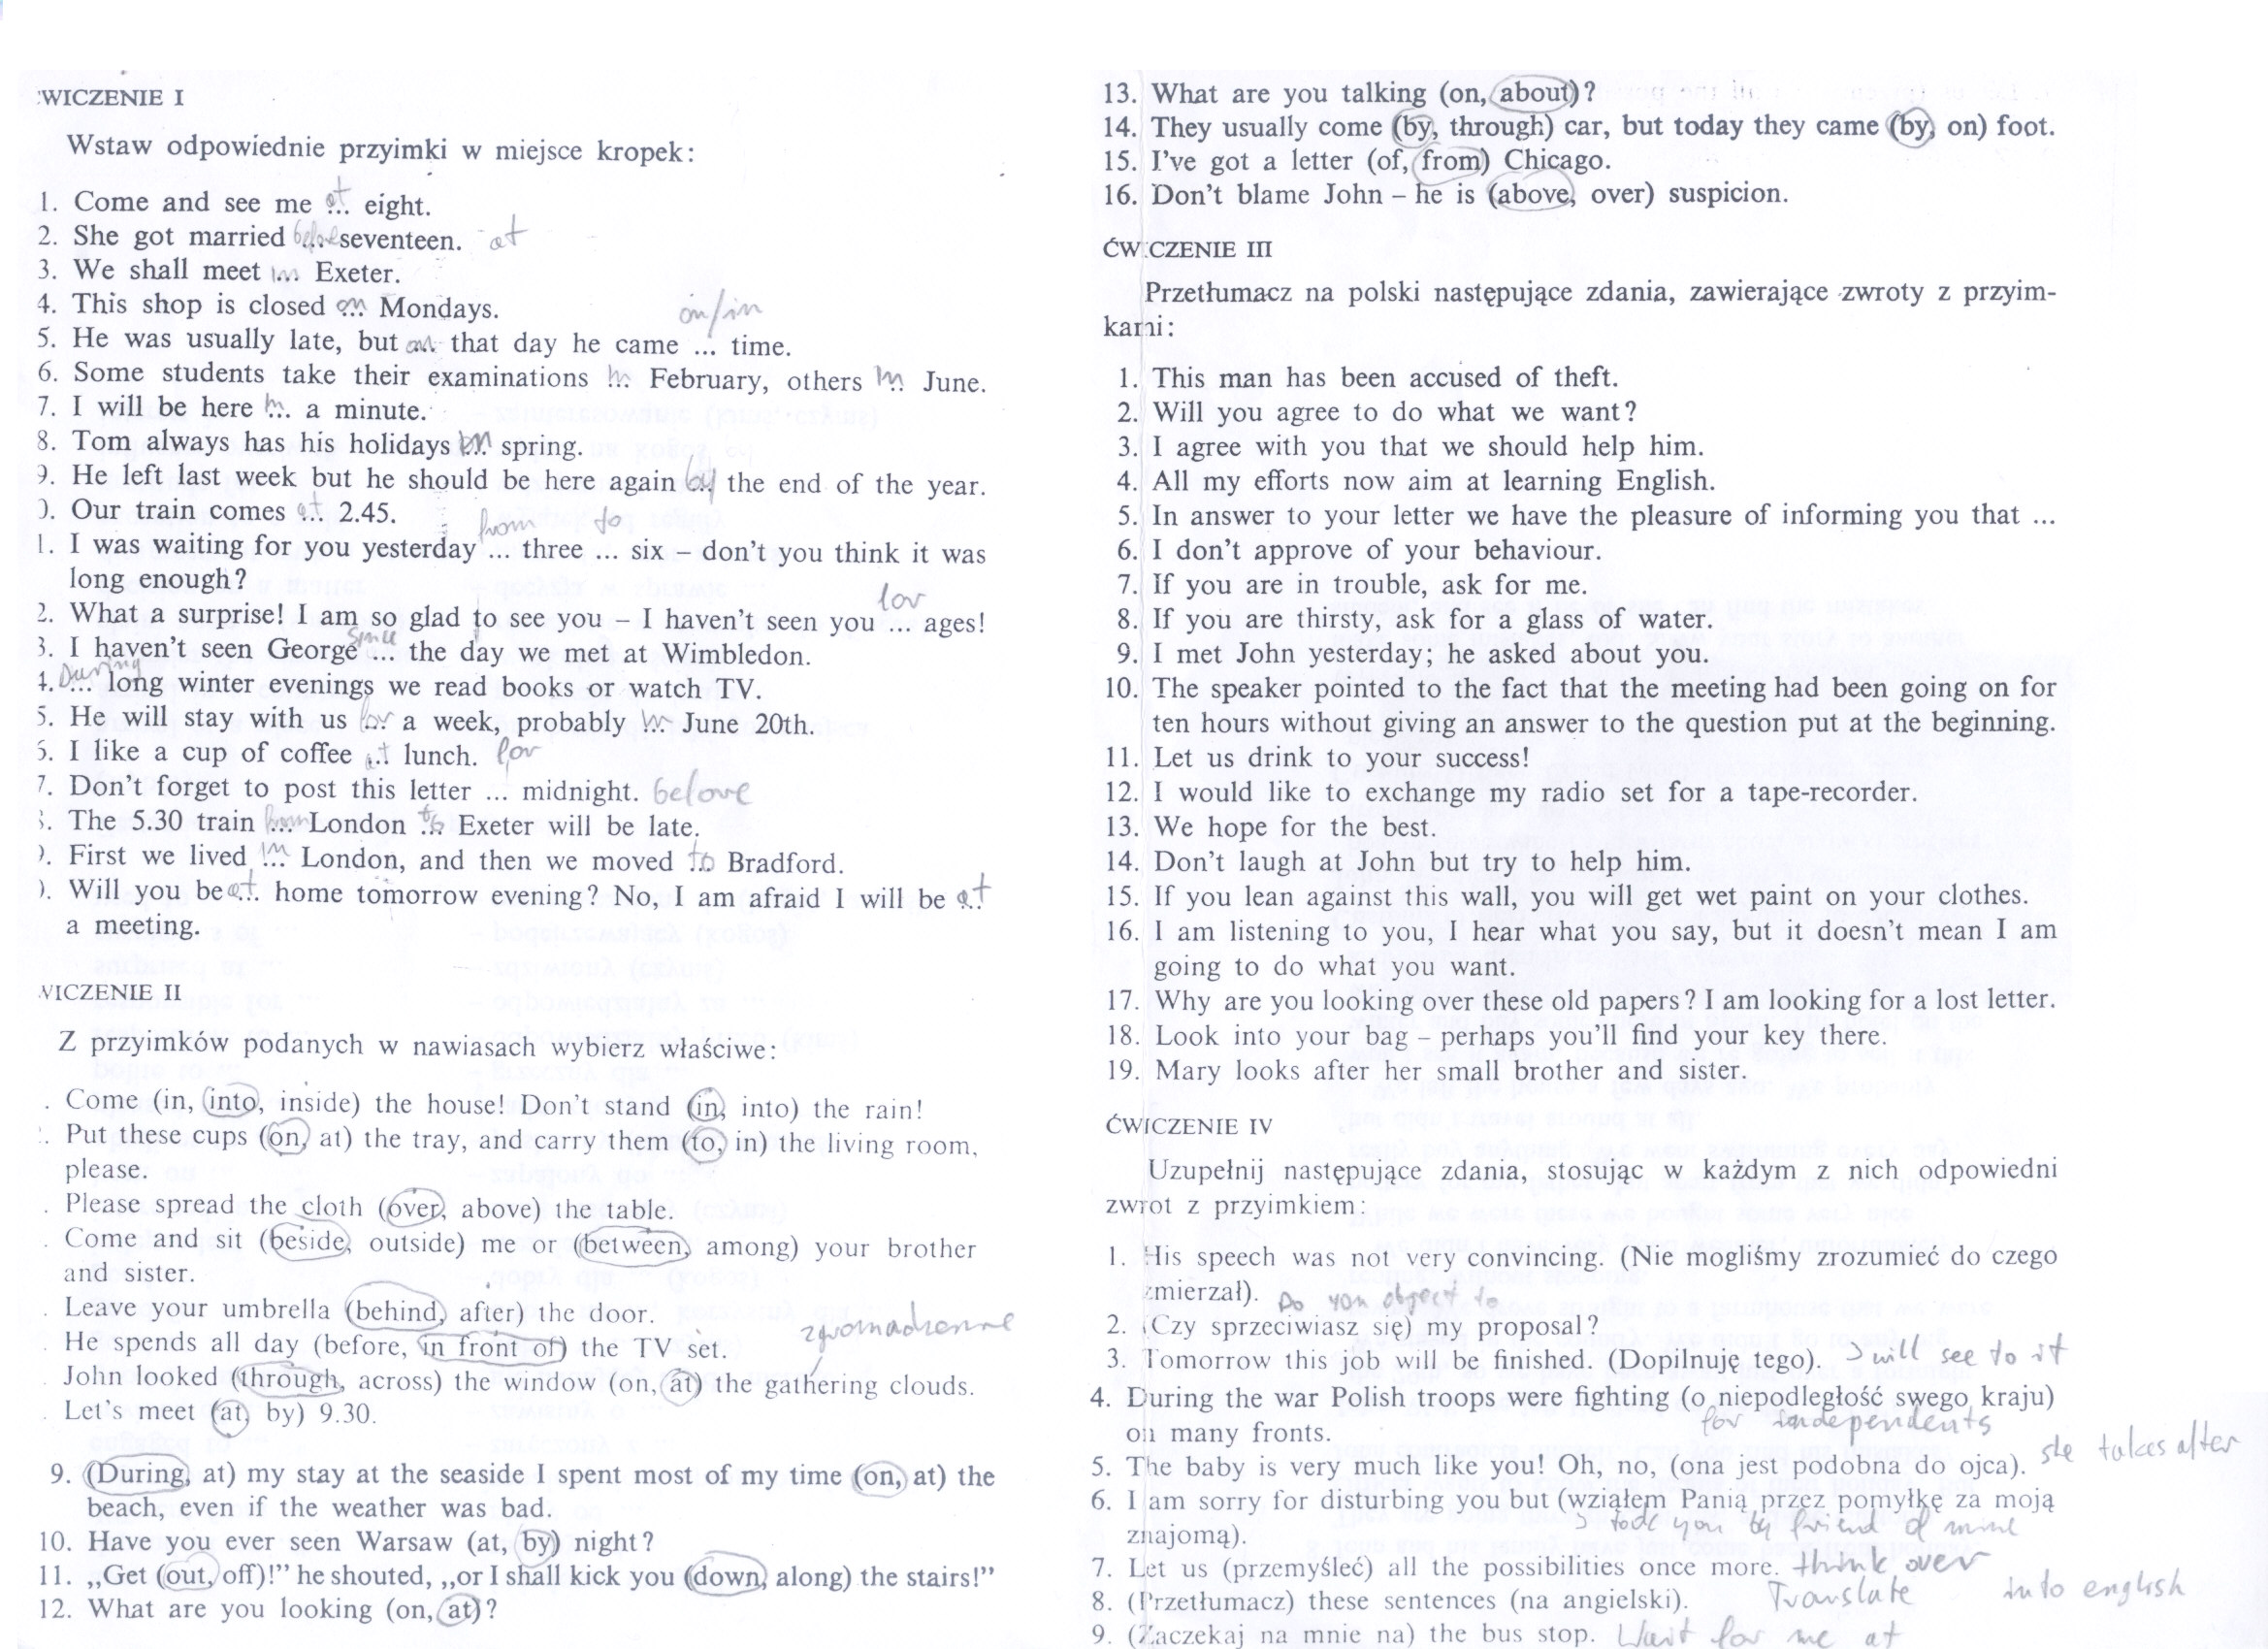 WICZENIE I
Wstaw odpowiednie przyimki w miejsce kropek:
1. Come and see me at ... eight.
2. She got married before ... seventeen. at
3. We shall meet in ... Exeter.
4. This shop is closed on ... Mondays.
on/in
5. He was usually late, but on ... that day he came ... time.
6. Some students take their examinations in ... February, others in ... June.
7. I will be here in ... a minute.
8. Tom always has his holidays ... spring.
9. He left last week but he should be here again by ... the end of the year.
). Our train comes at ... 2.45.
from to
1. I was waiting for you yesterday ... three ... six – don't you think it was
long enough?
for
2. What a surprise! I am so glad to see you – I haven't seen you ... ages!
3. I haven't seen George since ... the day we met at Wimbledon.
4. During ... long winter evenings we read books or watch TV.
5. He will stay with us for ... a week, probably in ... June 20th.
5. I like a cup of coffee at ... lunch. for
7. Don't forget to post this letter ... midnight. before
3. The 5.30 train from ... London to ... Exeter will be late.
). First we lived in ... London, and then we moved to ... Bradford.
). Will you be at ... home tomorrow evening? No, I am afraid I will be at ...
a meeting.
WICZENIE II
Z przyimków podanych w nawiasach wybierz właściwe:
. Come (in, into, inside) the house! Don't stand (in, into) the rain!
. Put these cups (on, at) the tray, and carry them (to, in) the living room,
please.
. Please spread the cloth (over, above) the table.
. Come and sit (beside, outside) me or (between, among) your brother
and sister.
. Leave your umbrella (behind, after) the door.
. He spends all day (before, in front of) the TV set.
zgromadzenie
. John looked (through, across) the window (on, at) the gathering clouds.
. Let's meet (at, by) 9.30.
9. (During, at) my stay at the seaside I spent most of my time (on, at) the
beach, even if the weather was bad.
10. Have you ever seen Warsaw (at, by) night?
11. „Get (out, off)!” he shouted, „or I shall kick you (down, along) the stairs!”
12. What are you looking (on, at)?
13. What are you talking (on, about)?
14. They usually come (by, through) car, but today they came (by, on) foot.
15. I've got a letter (of, from) Chicago.
16. Don't blame John – he is (above, over) suspicion.
ĆWICZENIE III
Przetłumacz na polski następujące zdania, zawierające zwroty z przyim-
kami:
1. This man has been accused of theft.
2. Will you agree to do what we want?
3. I agree with you that we should help him.
4. All my efforts now aim at learning English.
5. In answer to your letter we have the pleasure of informing you that ...
6. I don't approve of your behaviour.
7. If you are in trouble, ask for me.
8. If you are thirsty, ask for a glass of water.
9. I met John yesterday; he asked about you.
10. The speaker pointed to the fact that the meeting had been going on for
ten hours without giving an answer to the question put at the beginning.
11. Let us drink to your success!
12. I would like to exchange my radio set for a tape-recorder.
13. We hope for the best.
14. Don't laugh at John but try to help him.
15. If you lean against this wall, you will get wet paint on your clothes.
16. I am listening to you, I hear what you say, but it doesn't mean I am
going to do what you want.
17. Why are you looking over these old papers? I am looking for a lost letter.
18. Look into your bag – perhaps you'll find your key there.
19. Mary looks after her small brother and sister.
ĆWICZENIE IV
Uzupełnij następujące zdania, stosując w każdym z nich odpowiedni
zwrot z przyimkiem:
1. His speech was not very convincing. (Nie mogliśmy zrozumieć do czego
zmierzał). Do you object to
2. (Czy sprzeciwiasz się) my proposal?
3. Tomorrow this job will be finished. (Dopilnuję tego). I will see to it
4. During the war Polish troops were fighting (o niepodległość swego kraju)
for independents
on many fronts.
5. The baby is very much like you! Oh, no, (ona jest podobna do ojca). she takes after
6. I am sorry for disturbing you but (wziąłem Panią przez pomyłkę za moją
znajomą). I took you by friend of mine
7. Let us (przemyśleć) all the possibilities once more. think over
8. (Przetłumacz) these sentences (na angielski). Translate into english
9. (Zaczekaj na mnie na) the bus stop. Wait for me at